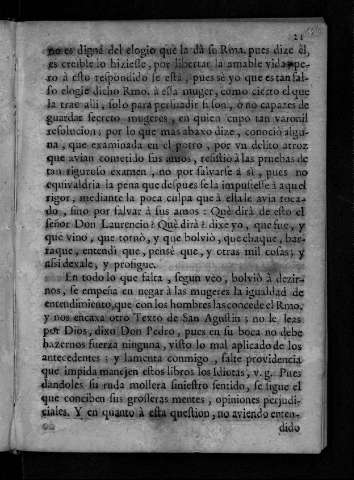 21
no es digna del elogio que la dà su Rma. pues dize èl,
es creible lo hiziesse, por libertar la amable vida, pe-
ro à esto respondido se està, pues sè yo que es tan fal-
so elogie dicho Rmo. à esta muger, como cierto el que
la trae aqui, solo para persuadir si son, ò no capazes de
guardar secreto mugeres, en quien cupo tan varonil
resolucion; por lo que mas abaxo dize, conociò algu-
na, que examinada en el potro, por vn delito atroz
que avian cometido sus amos, resistiò à las pruebas de
tan riguroso examen, no por salvarse à sì, pues no
equivaldria la pena que despues se la impusiesse à aquel
rigor, mediante la poca culpa que à esta le avia toca-
do, sino por salvar à sus amos: Què dirà de esto el
señor Don Laurencio? Què dirà? dixe yo, que fue, y
que vino, que tornò, y que bolviò, que chaque, bar-
raque, entendi que, pensè que, y otras mil cosas; y
assi dexale, y prosigue.
En todo lo que falta, segun veo, bolviò à dezir-
nos, se empeña en negar à las mugeres la igualdad de
entendimiento, que con los hombres las concede el Rmo.
y nos encaxa otro Texto de San Agustin; no le leas
por Dios, dixo Don Pedro, pues en su boca no debe
hazernos fuerza ninguna, visto lo mal aplicado de los
antecedentes; y lamenta conmigo, falte providencia
que impida manejen estos libros los Idiotas, v.g. Pues
dandoles su ruda mollera siniestro sentido, se sigue el
que conciben sus grosseras mentes, opiniones perjudi-
ciales. Y en quanto à esta question, no aviendo enten-
dido